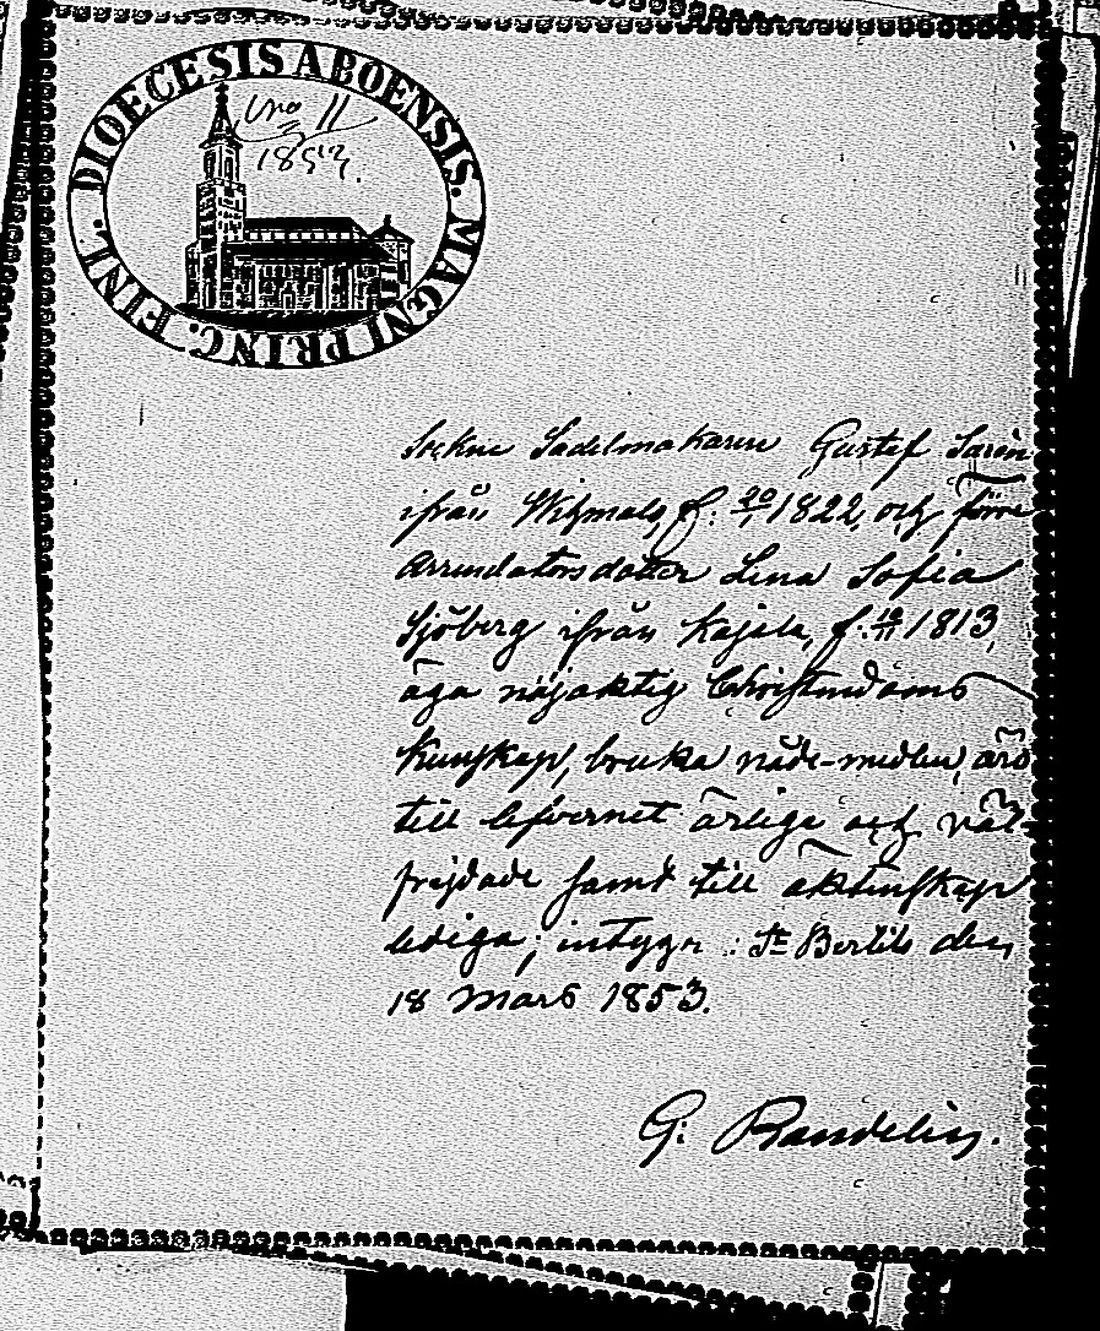 DIOECESIS ABOENSIS. MAGNI PRINC. FINL.
Nro 11
1853.
Sockne Sadelmakaren Gustef Sarén
ifrån f. 20/1 1822, och förre
Arrendatorsdotter Lena Sofia
Sjöberg ifrån Kajala, f. 1813,
äga nöjaktig Christendoms
kunskap, bruka nåde-medlen, äro
till lefvernet ärlige och väl-
frejdade samt till äktenskap
lediga; intygar: St Bertils den
18 Mars 1853.
G. Randelin.